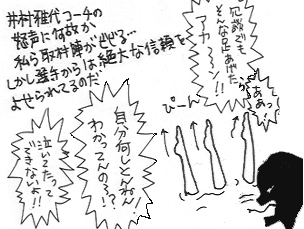 井村雅代コーチの
怒声になぜか
私ら取材陣がビビる…
しかし選手からは絶大な信頼を
よせられてるのだ
死んでも
そんな足あげた
アカーン!!
ああっ!
ぴーん
自分何しとんねん!
わかってんのっ!?
泣いてたって
できないよ!!